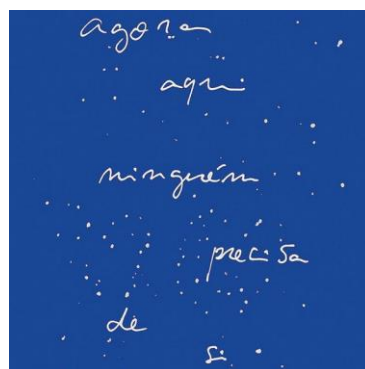 agora
aqui
ninguém
precisa
de
si